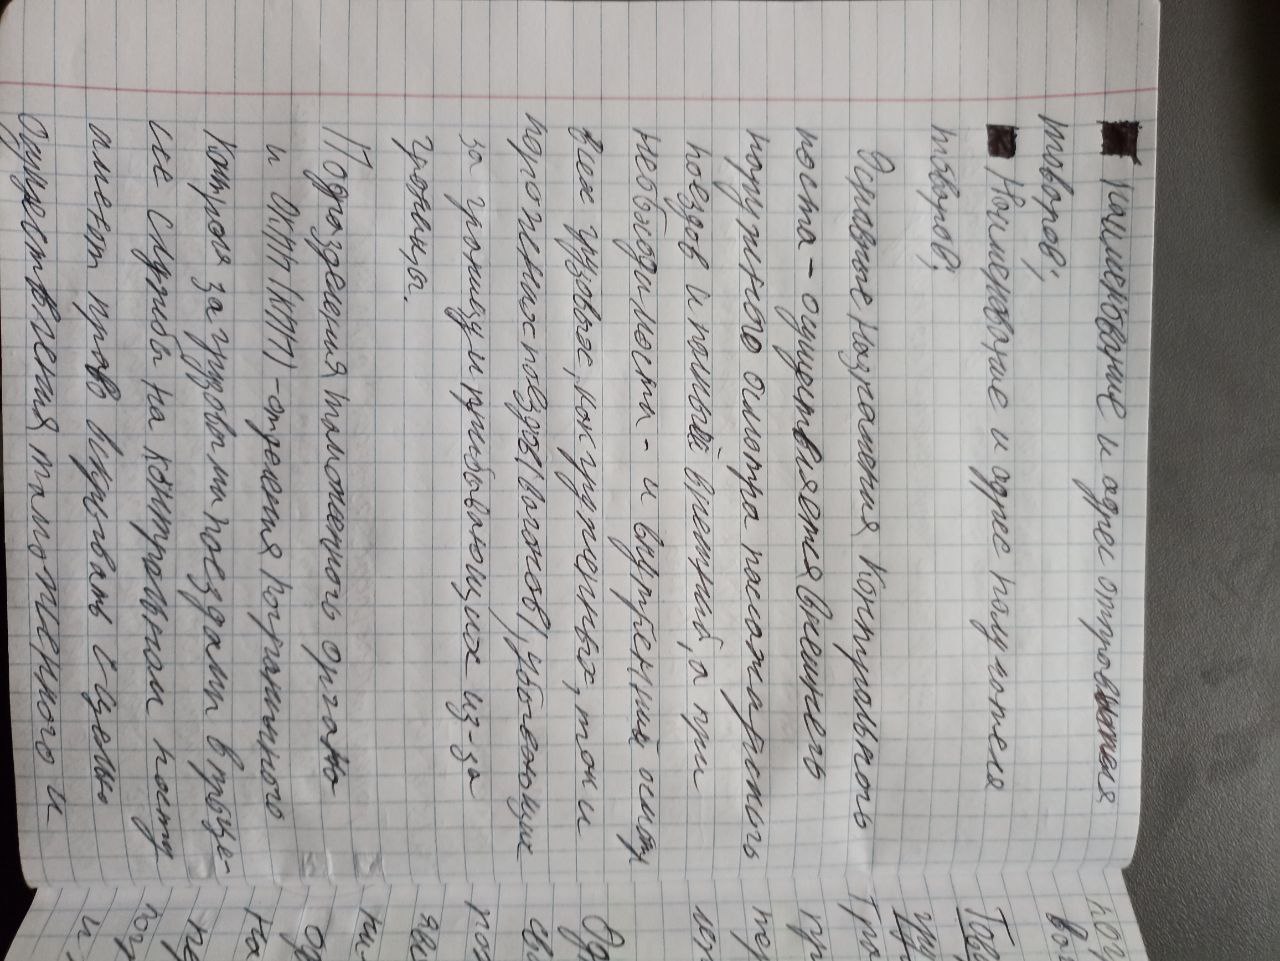 ■ Наименование и адрес отправителя
товаров;
■ Наименование и адрес получателя
товаров;
Основные назначения Контрольного
поста - осуществляется внешнего
наружного осмотра пассажирских
поездов и полный внешний, а при
необходимости - и внутренний осмотр
всех грузовых, как груженных, так и
порожених поездов (вагонов), убывающих
за границу и прибывающих из-за
границы.
Подразделения таможенного органа
и ОПП (КПП) - отделения пограничного
контроля за грузовыми поездами в
сее службы на контрольном посту
имеет право вскрывать с целью
Осуществления таможенного и